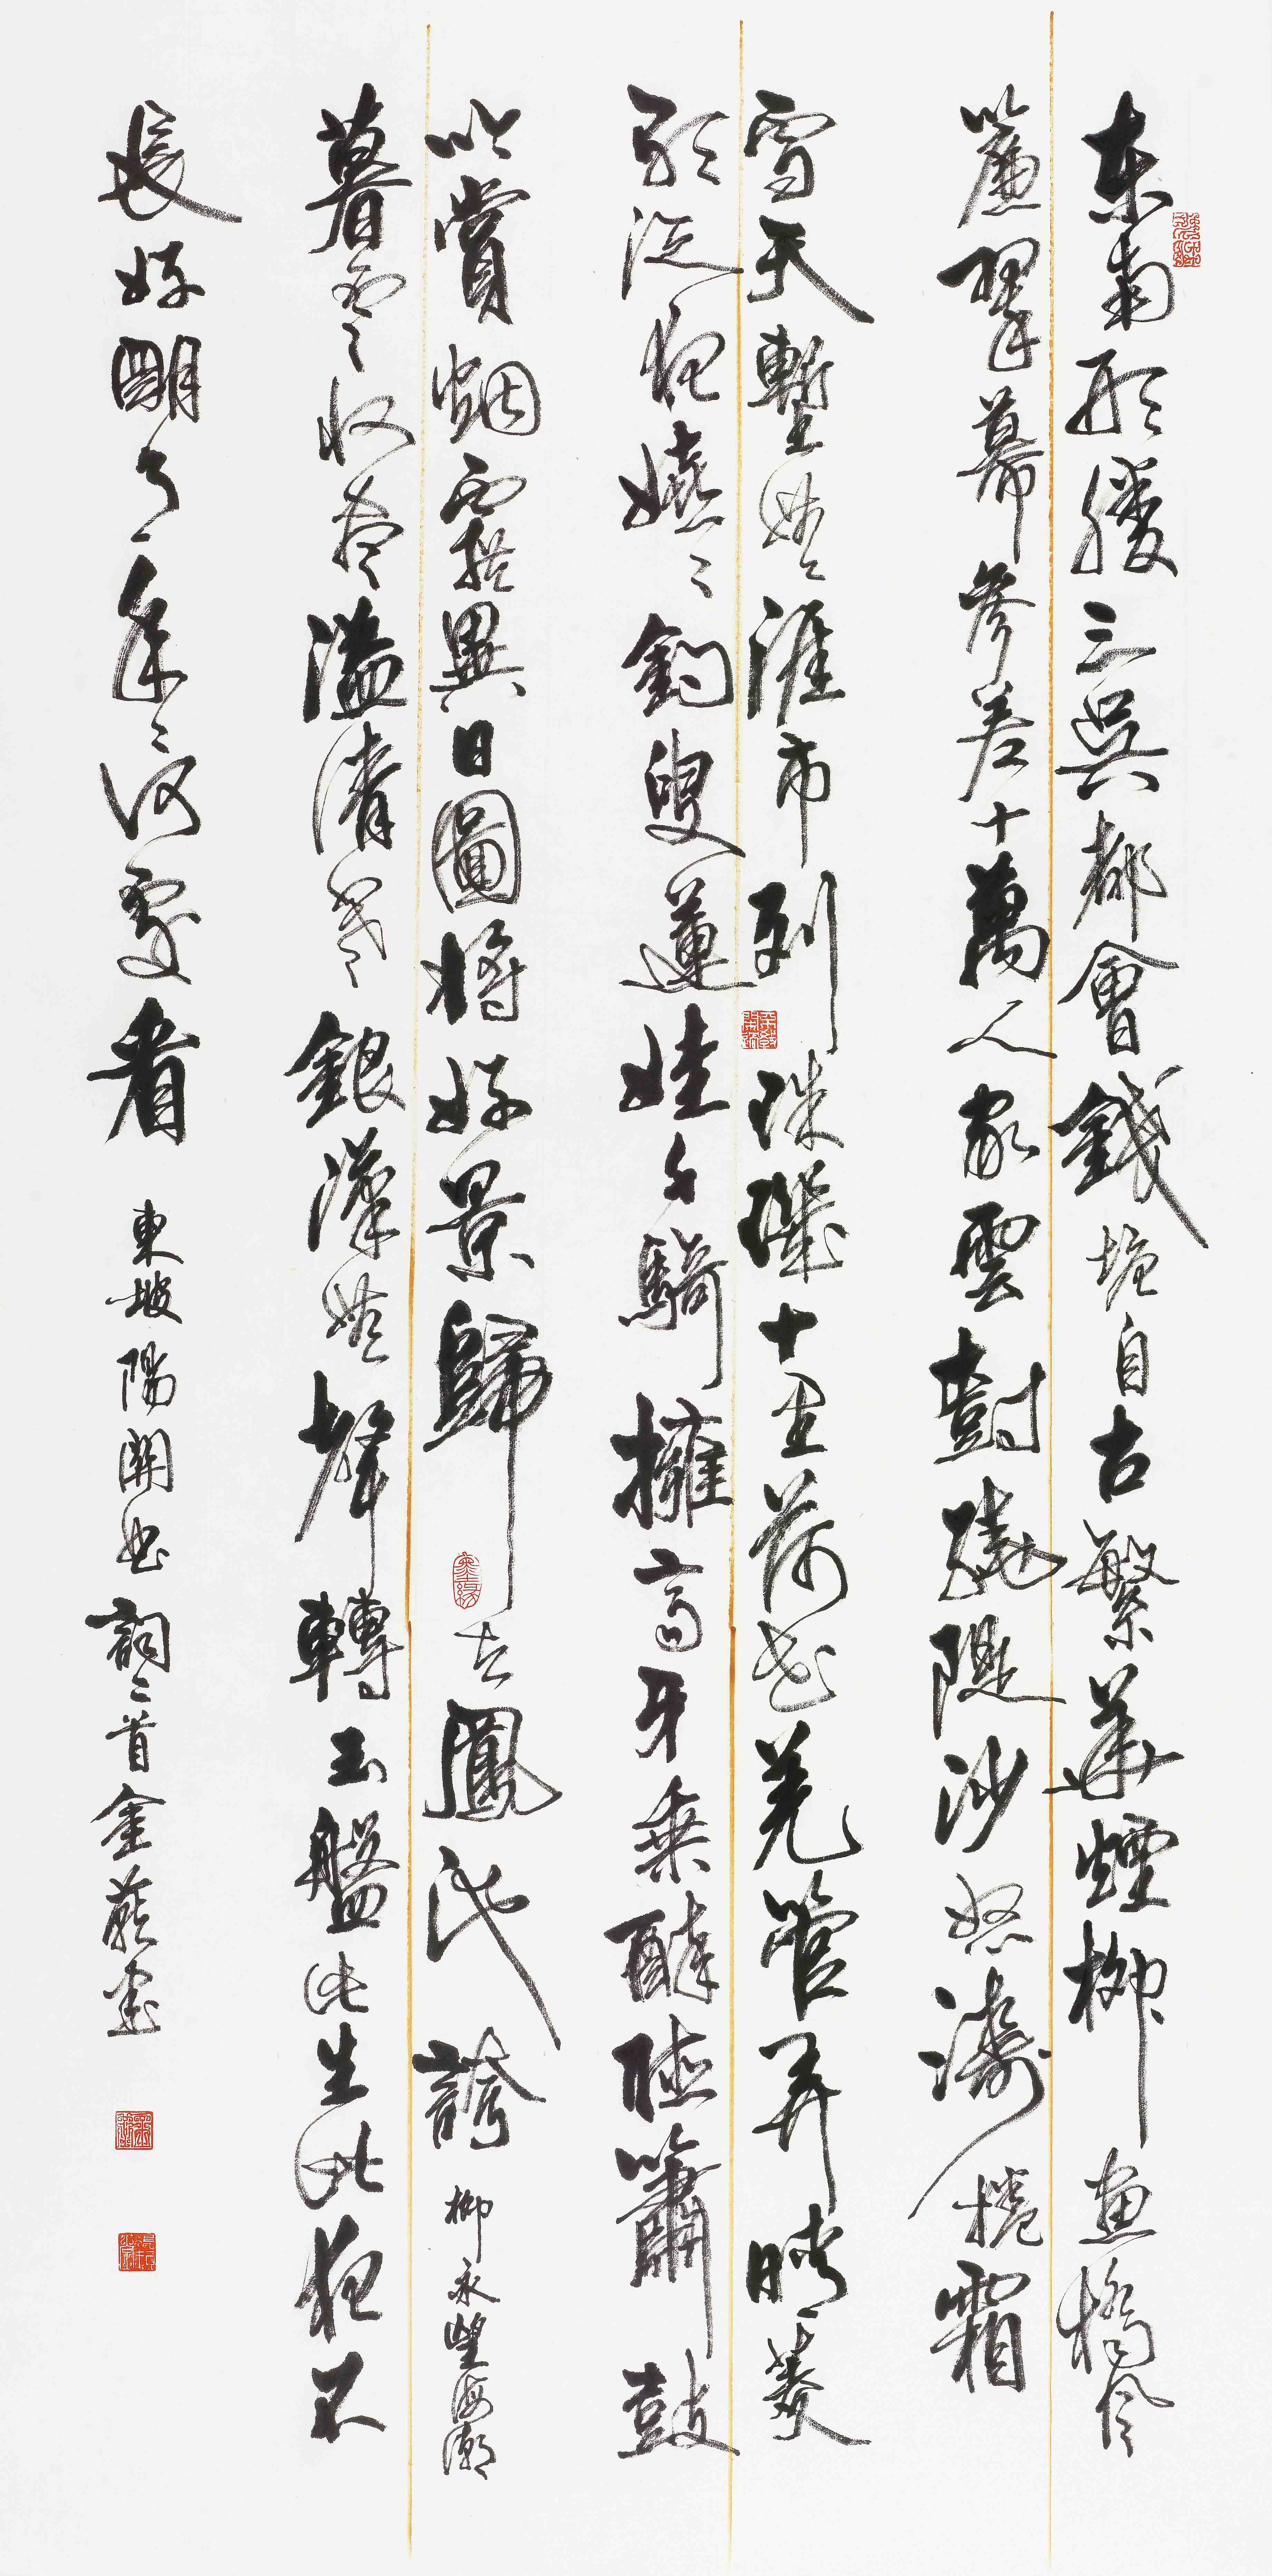 東南形勝三吳都會錢塘自古繁華煙柳畫橋風
簾翠幕參差十萬人家雲樹繞隄沙怒濤捲霜
雪天塹無涯市列珠璣十里荷花羌管弄晴菱
歌泛夜嬉々釣叟蓮娃千騎擁高牙乘醉聽簫鼓
吟賞烟霞異日圖將好景歸去鳳池誇 柳永望海潮
暮雲收盡溢清寒銀漢無聲轉玉盤此生此夜不
長好明月年々何處看 東坡陽關曲 詞二首 金書